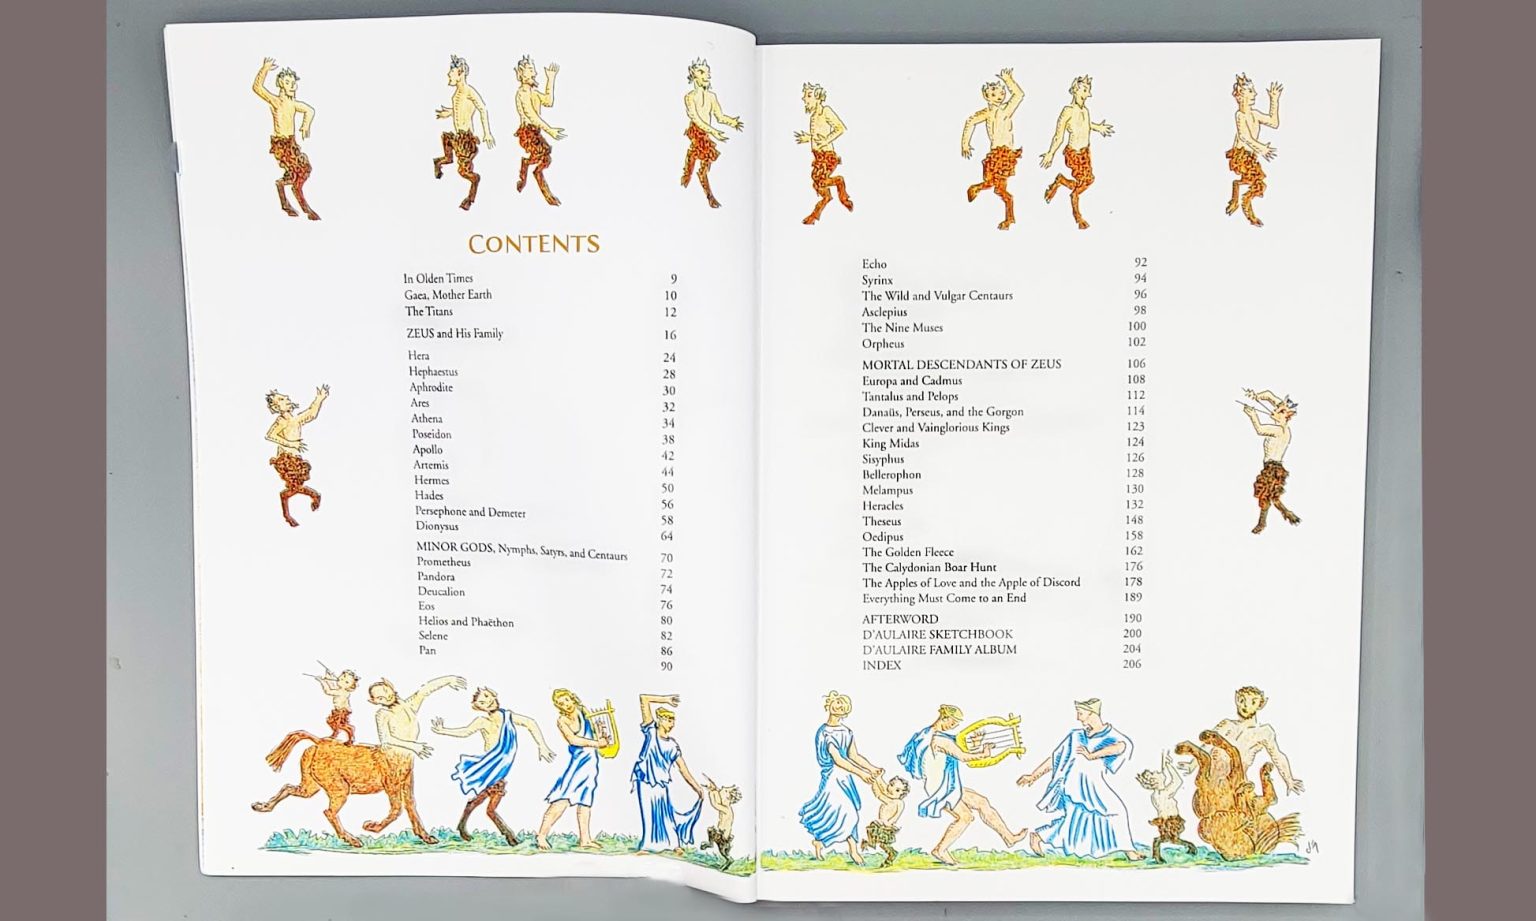 CONTENTS
In Olden Times 9
Gaea, Mother Earth 10
The Titans 12
ZEUS and His Family 16
Hera 24
Hephaestus 28
Aphrodite 30
Ares 32
Athena 34
Poseidon 38
Apollo 42
Artemis 44
Hermes 50
Hades 56
Persephone and Demeter 58
Dionysus 64
MINOR GODS, Nymphs, Satyrs, and Centaurs 70
Prometheus 72
Pandora 74
Deucalion 76
Eos 80
Helios and Phaëthon 82
Selene 86
Pan 90
Echo 92
Syrinx 94
The Wild and Vulgar Centaurs 96
Asclepius 98
The Nine Muses 100
Orpheus 102
MORTAL DESCENDANTS OF ZEUS 106
Europa and Cadmus 108
Tantalus and Pelops 112
Danaüs, Perseus, and the Gorgon 114
Clever and Vainglorious Kings 123
King Midas 124
Sisyphus 126
Bellerophon 128
Melampus 130
Heracles 132
Theseus 148
Oedipus 158
The Golden Fleece 162
The Calydonian Boar Hunt 176
The Apples of Love and the Apple of Discord 178
Everything Must Come to an End 189
AFTERWORD 190
D'AULAIRE SKETCHBOOK 200
D'AULAIRE FAMILY ALBUM 204
INDEX 206